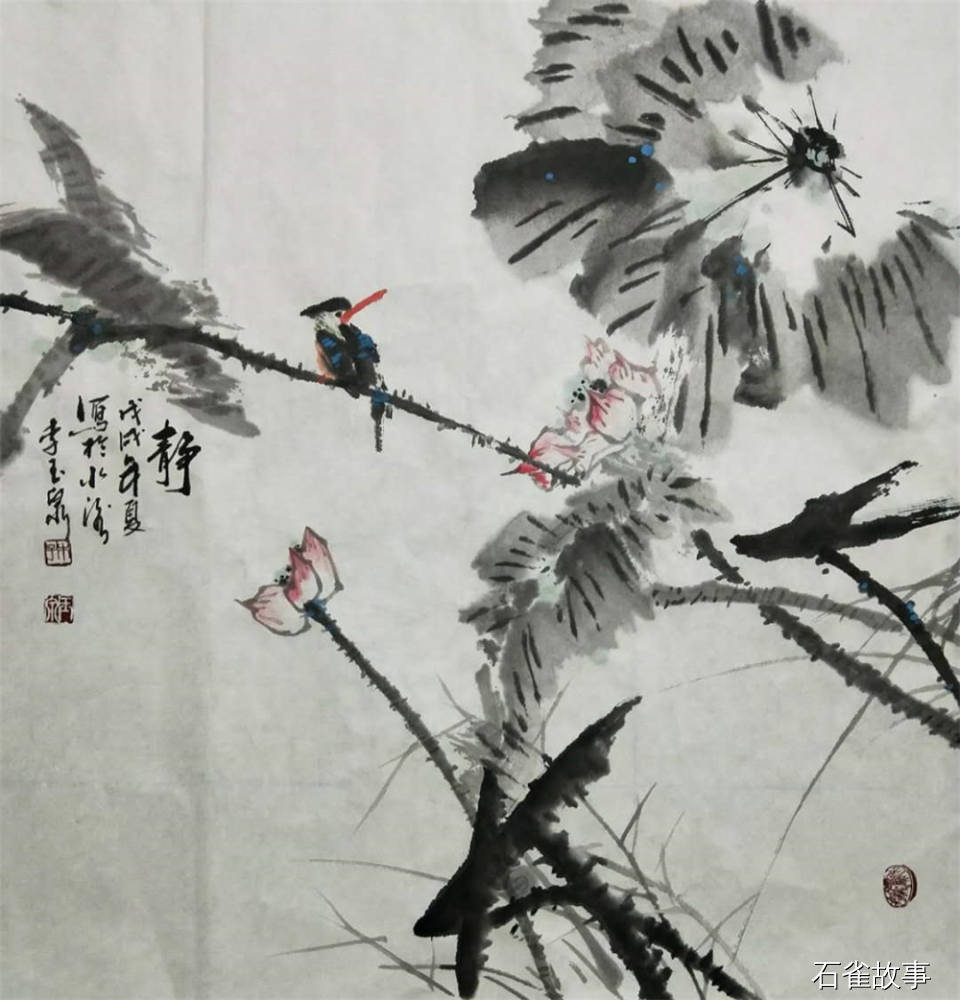 静
戊戌年夏
写於水湾
李玉泉
石雀故事